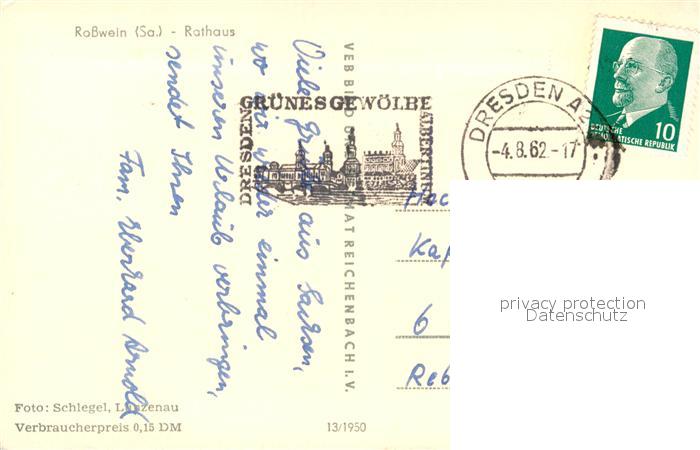 Roßwein (Sa.) - Rathaus
Viele Grüße aus Sachsen,
wo wir wieder einmal
unseren Urlaub verbringen,
sendet Ihnen
Fam. Eberhard Arnold
VEB BILD REICHENBACH I. V.
GRÜNES GEWÖLBE
DRESDEN
ALBERTINUM
DRESDEN A
-4.8.62.-17
DEUTSCHE
DEMOKRATISCHE REPUBLIK
10
6
privacy protection
Datenschutz
Foto: Schlegel, Lunzenau
Verbraucherpreis 0,15 DM
13/1950